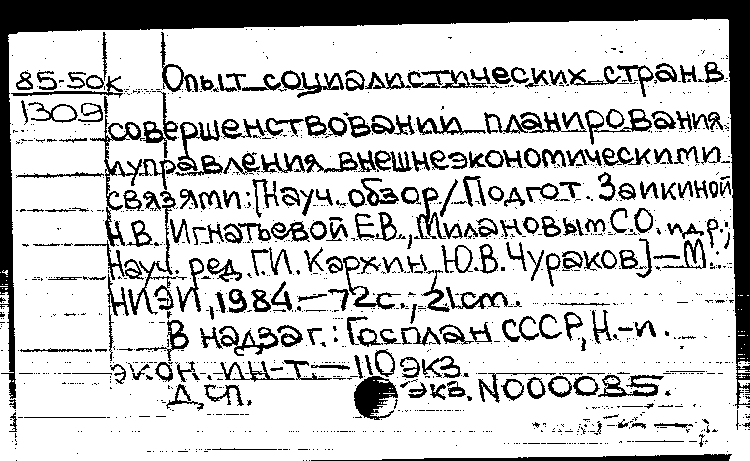 85-50к
1309
Опыт социалистических стран в
совершенствовании планирования
и управления внешнеэкономическими
связями: [Науч. обзор/Подгот. Заикиной
Н.В. Игнатьевой Е.В., Милановым С.О. и др.;
Науч. ред. Г.И. Кархин, Ю.В. Чураков]. — М.:
НИЭИ, 1984. — 72 с.; 21 cm.
В надзаг.: Госплан СССР, Н.-и.
экон. ин-т. — 110 экз.
Д.сп. экз. N000085.